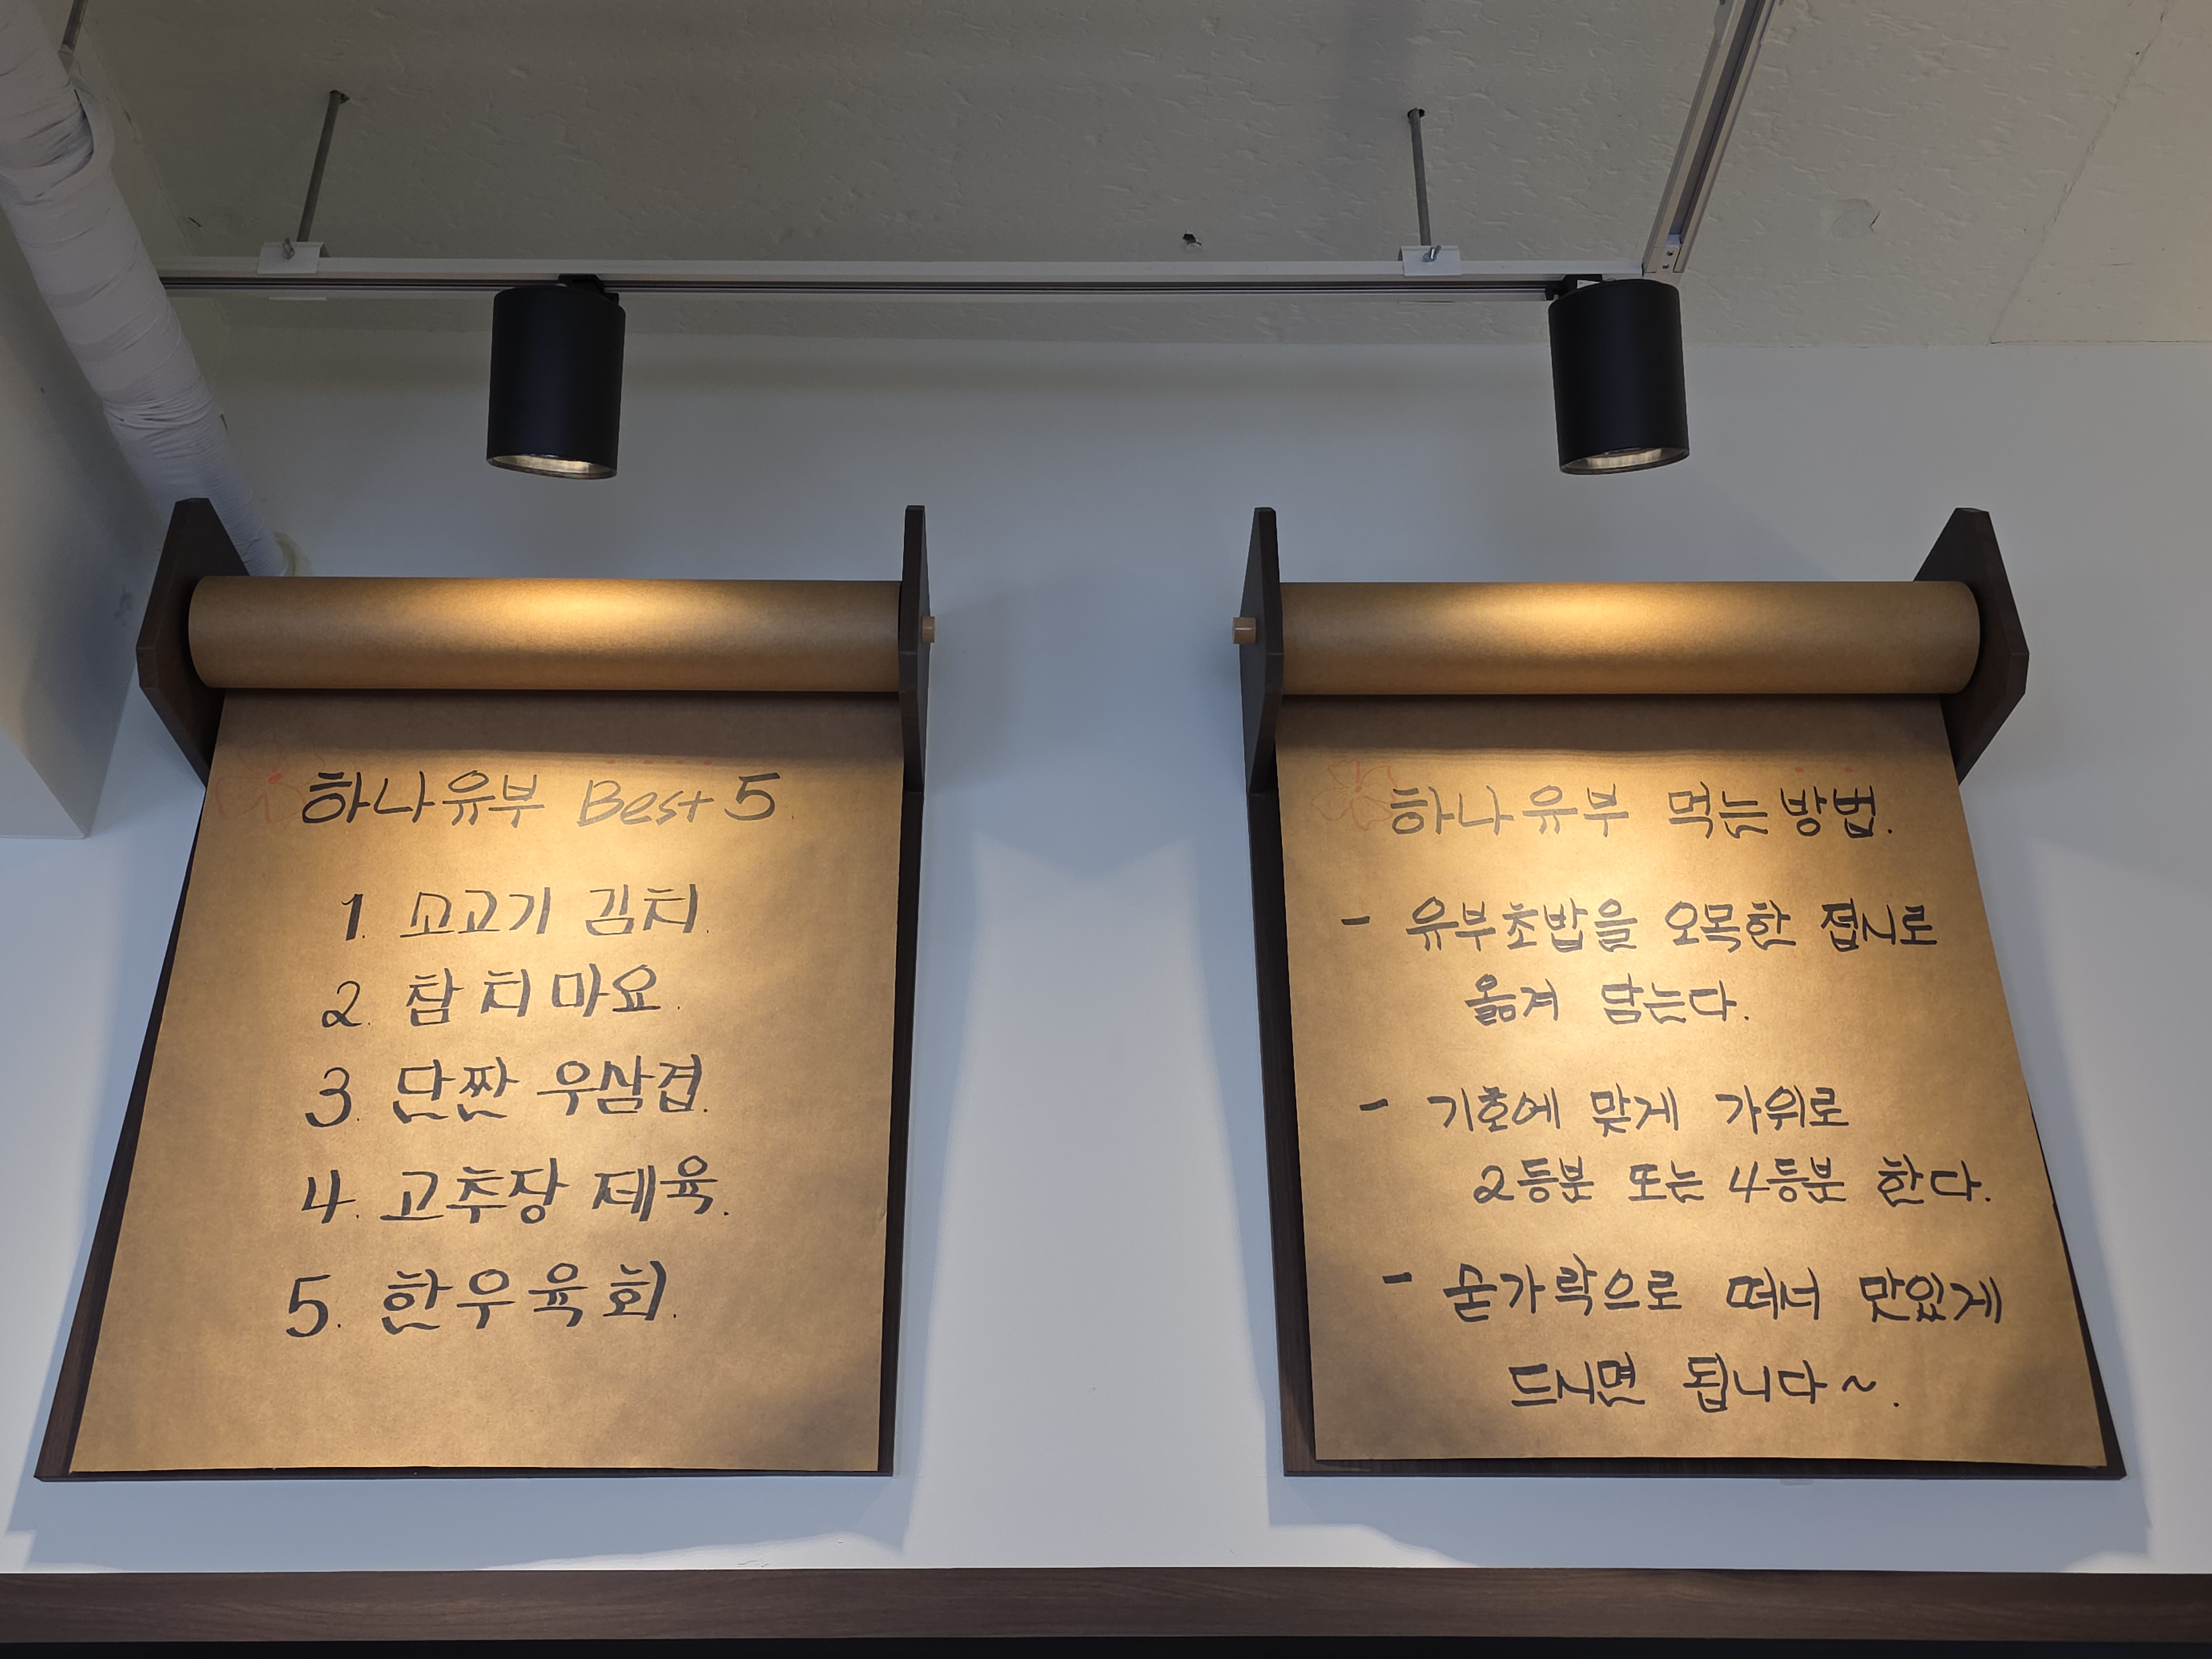 하나유부 Best 5
1. 소고기 김치.
2. 참치마요.
3. 단짠 우삼겹.
4. 고추장 제육.
5. 한우육회.
하나유부 먹는방법.
- 유부초밥을 오목한 접시로
옮겨 담는다.
- 기호에 맞게 가위로
2등분 또는 4등분 한다.
- 숟가락으로 떠서 맛있게
드시면 됩니다~.